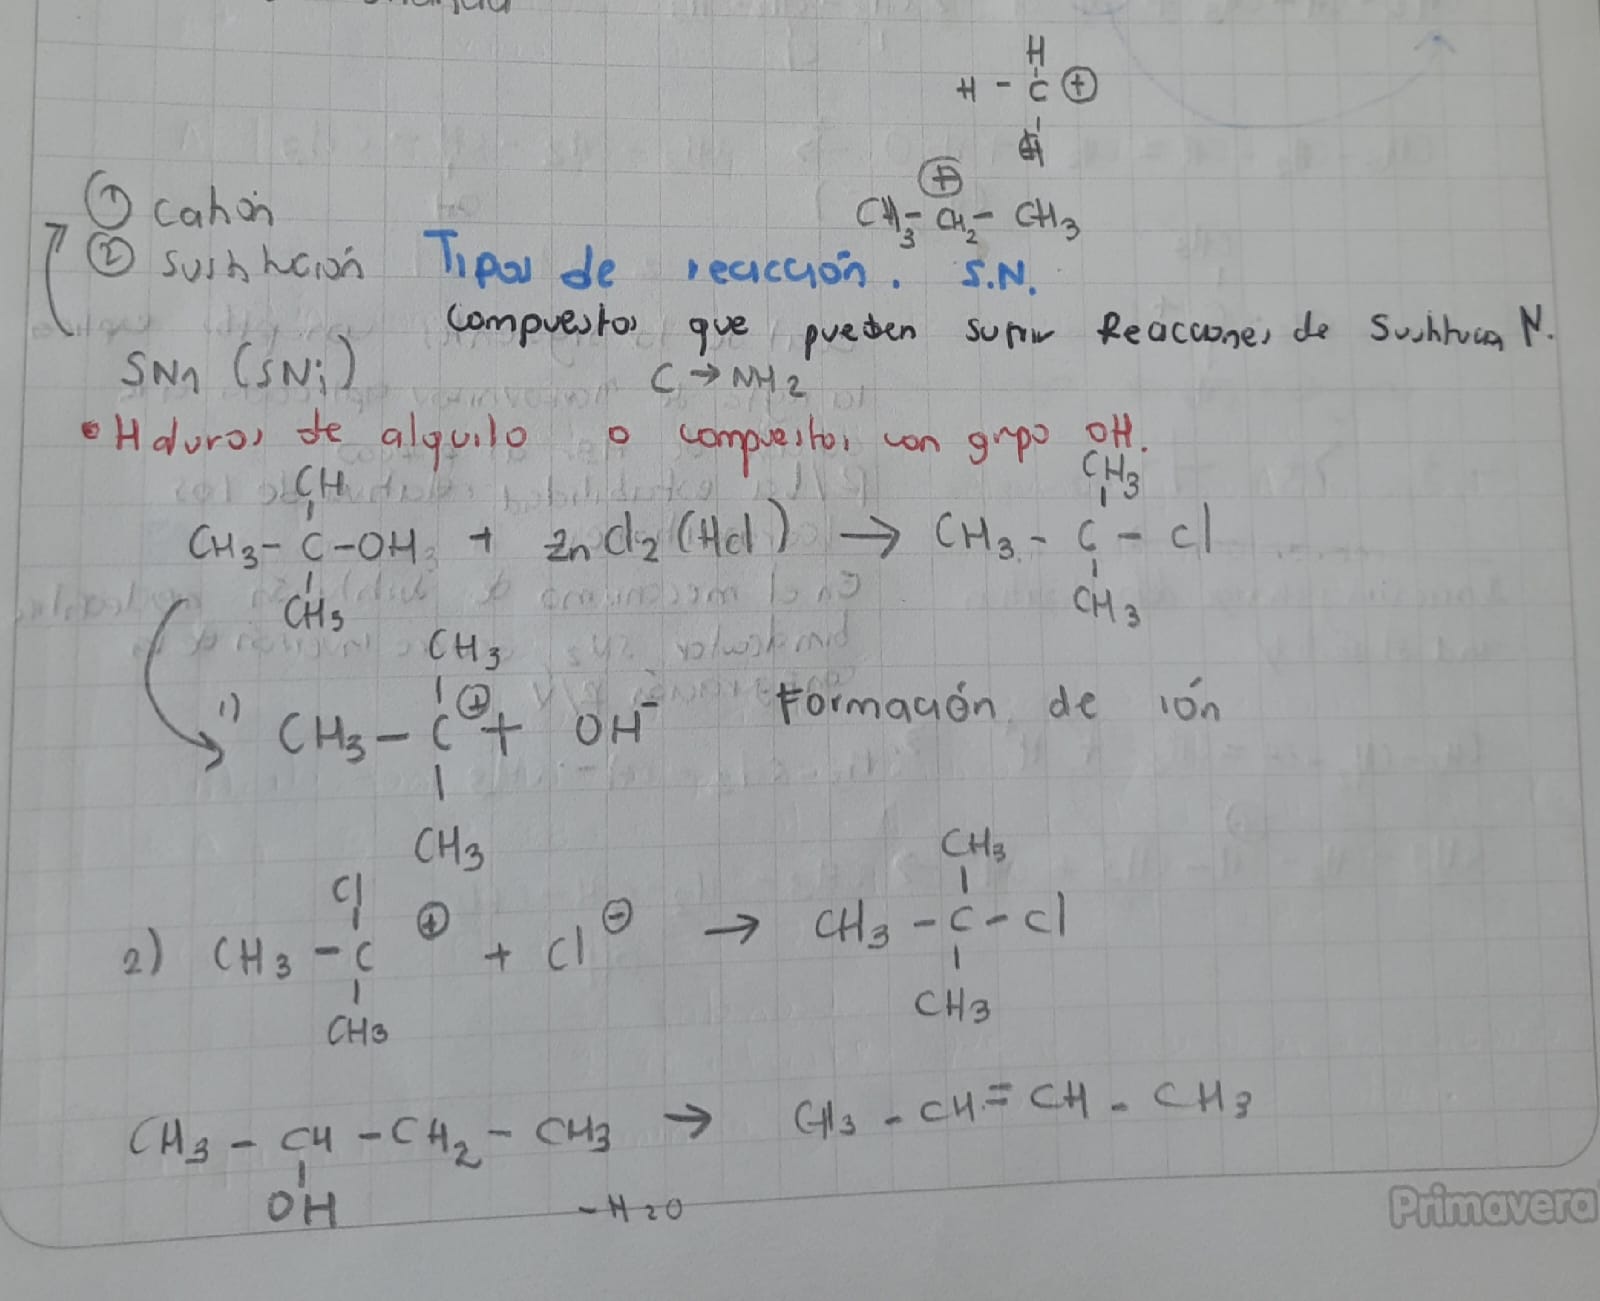 H
H - C ⊕
CH3 - CH2 - CH3
⊕
① catión
② sustitución
Tipos de reacción. S.N.
Compuestos que pueden sufrir Reacciones de Sustitución N.
SN1 (SNi)
C → NH2
• Haluros de alquilo o compuestos con grupo OH.
CH
CH3 - C - OH + ZnCl2 (Hcl) → CH3 - C - Cl
CH3
CH3
CH3
1) CH3 - C ⊕ + OH⁻ Formación de ión
CH3
CH3
Cl
2) CH3 - C ⊕ + Cl ⊖ → CH3 - C - Cl
CH3
CH3
CH3
CH3 - CH - CH2 - CH3 → CH3 - CH = CH - CH3
OH
- H2O
Primavera